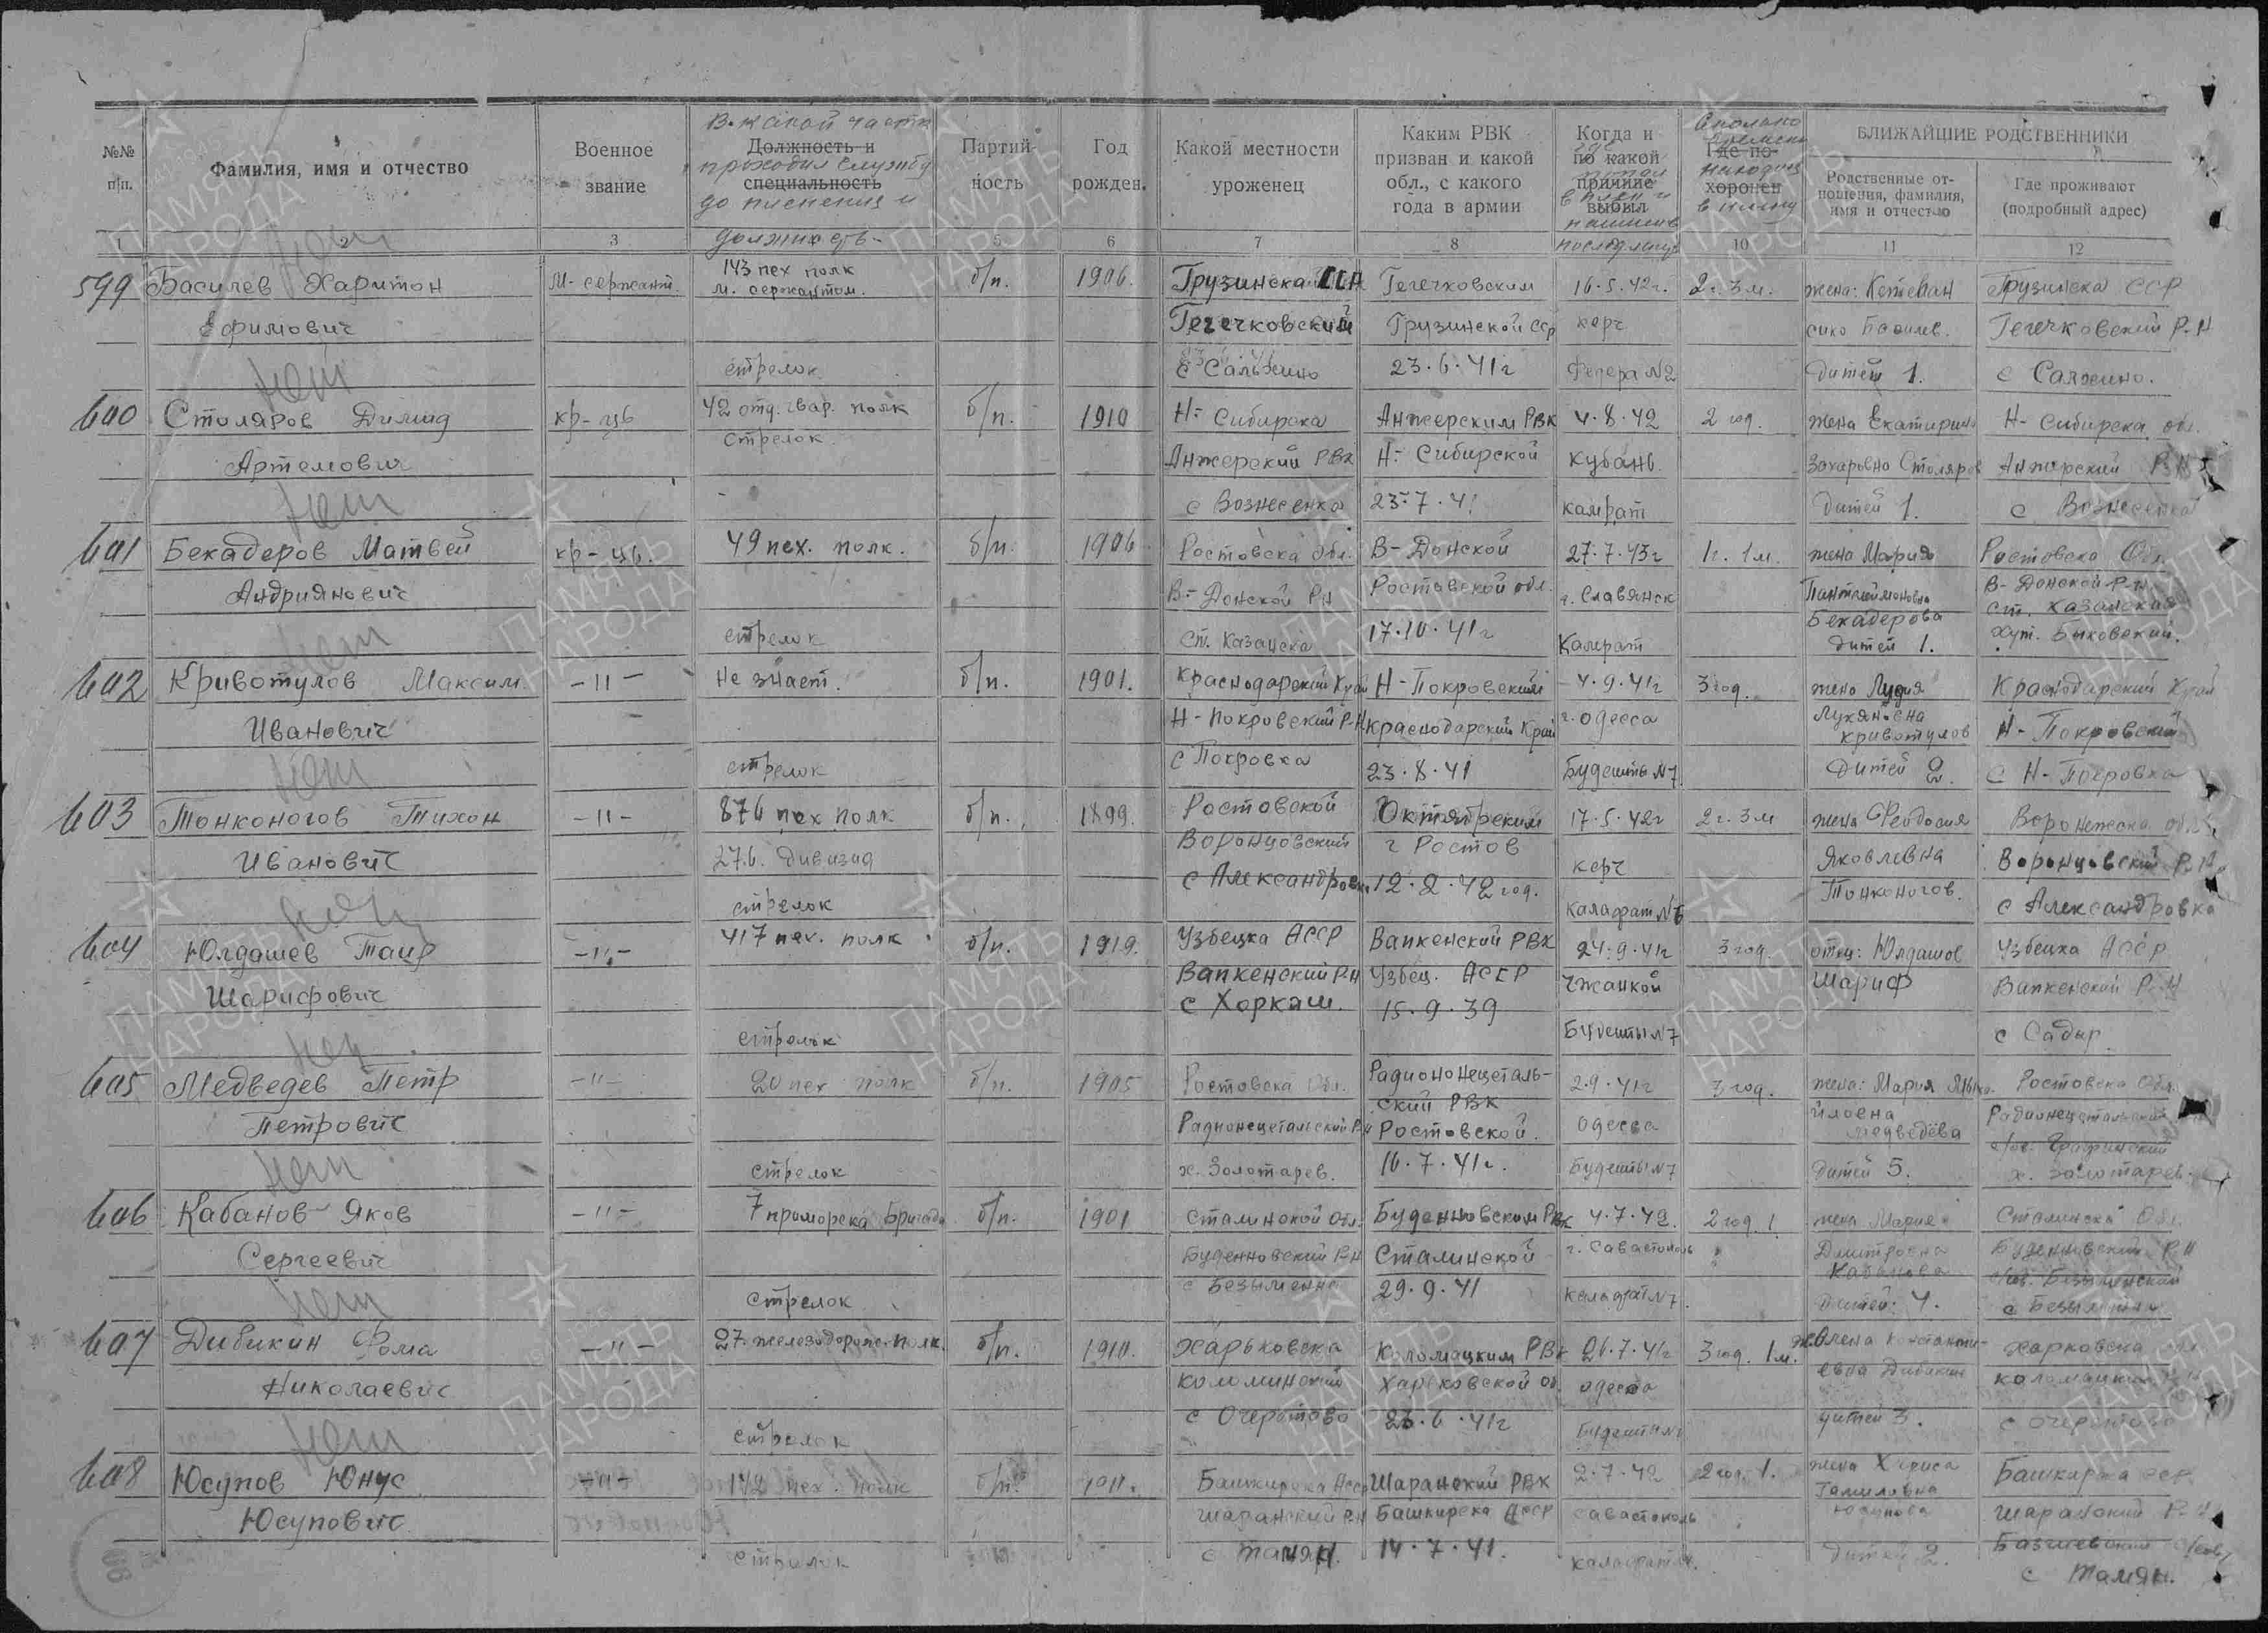 №№ п/п.
Фамилия, имя и отчество
Военное звание
В какой части проходил службу до пленения и должность
Должность и специальность
Партийность
Год рожден.
Какой местности уроженец
Каким РВК призван и какой обл., с какого года в армии
Когда и по какой причине выбыл
Где похоронен
БЛИЖАЙШИЕ РОДСТВЕННИКИ
Родственные отношения, фамилия, имя и отчество
Где проживают (подробный адрес)
1 2 3 5 6 7 8 10 11 12
599 Басилев Харитон М-сержант. 143 пех полк б/п. 1906. Грузинска ССР Гегечковским 16.5.42г. 2г. 3м. жена: Кетеван Грузинска ССР
м. сержантом.
Ефимович Гегечковский Грузинской ССР керч Гегечковский Р-Н
стрелок с Сальхино 23.6.41г N2 Дитей 1. с Салхино.
нет
600 Столяров Димид кр-ць 42 отд. гвар. полк б/п. 1910 Н-Сибирска Анжерским РВК 4.8.42 2 год. жена Екатирина Н-Сибирска обл.
стрелок
Артемович Анжерский РВК Н-Сибирской Кубань Захаровна Столяров Анжерский Р-Н
с Вознесенка 23.7.41 Дитей 1. с Вознесенка
нет
601 Бекадеров Матвей кр-ць. 49 пех. полк. б/п. 1906 Ростовска обл. В-Донской 27.7.43г 1г. 1м. жена Мария Ростовска Обл.
Андриянович В-Донской РН Ростовской обл. г. Славянск Пантилимоновна В-Донской Р-Н
ст. Казанския
Бекадерова
стрелок ст. Казанска 17.10.41г дитей 1. хут. Быковский.
нет
602 Кривотулов Максим -II- не знает. б/п. 1901. Краснодарский Край Н-Покровский 4.9.41г 3 год. жена Лудия Краснодарский Край
Иванович Н-Покровский Р-Н Краснодарский Край г. Одесса Лукяновна Кривотулов Н-Покровский
стрелок с Покровка 23.8.41 Будешты N7 Дитей 2. с Н-Покровка
нет
603 Тонконогов Тихон -II- 876 пех полк б/п. 1899. Ростовской Октябрским 17.5.42г 2г. 3м жена Феодосия Воронежска обл
Иванович 276. дивизия Воронцовский г Ростов керч Яковлевна Воронцовский Р-Н.
стрелок с Александровка 12.2.42 год. Калафат N6 Тонконогов. с Александровка
604 Юлдашев Таир -II- 417 пех. полк б/п. 1919. Узбецка АССР Вапкенский РВК 24.9.41г 3 год. отец: Юлдашов Узбецка АССР
Шарифович Вапкенский Р-Н Узбец. АССР Чжанкой Шариф Вапкенский Р-Н
стрелок с Хоркаш. 15.9.39 Будешты N7 с Садыр.
605 Медведев Петр -II- 20 пех полк б/п. 1905 Ростовска Обл. Радиононецеталь- 2.9.41г 3 год. жена: Мария Ростовска Обл.
ский РВК
Петрович Радионецетальский Р-Н Ростовской. Одесса Медведева Радионецетальский
стрелок х. Золотарев. 16.7.41г. Будешты N7 дитей 5. х. Золотарев
нет
606 Кабанов Яков -II- 7 приморска Бригада б/п. 1901 Сталинской Обл. Буденновским РВК 4.7.42. 2 год 1 жена Мария Сталинска Обл.
Сергеевич Буденновский Р-Н Сталинской г. Савастополь Дмитровна Буденновский Р-Н
Кабанова
стрелок с Безымянно 29.9.41 Калафат N7. дитей: 4. с Безымянни
нет
607 Дибикин Фома -II- 27 железодорожн. полк. б/п. 1910. Харьковска Коломацким РВК 26.7.41г 3 год. 1м. Харковска
Николаевич Коломинский Харьковской об. одесса евна Дибикин коломацкий
стрелок с Очеретово 23.6.41г дитей 3. с очеретово
нет
608 Юсупов Юнус -II- 142 пех. полк б/п. 1911. Башкирска Асср Шаранский РВК 2.7.42 2 год. 1. жена Башкирска сср
Юсупович Шаранский р-н Башкирска АССР Савастополь Юсупова Шаранский Р-Н
стрелок 14.7.41. дитей 2.
с Тамян.
ПАМЯТЬ НАРОДА